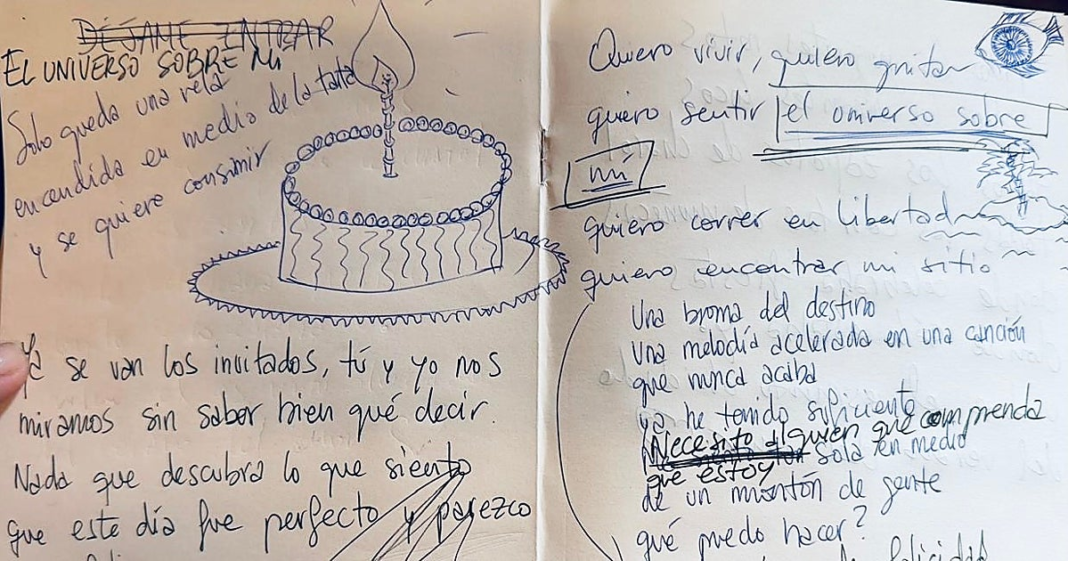 DÉJAME ENTRAR
EL UNIVERSO SOBRE MI
Solo queda una vela
encendida en medio de la tarta
y se quiere consumir
Ya se van los invitados, tú y yo nos
miramos sin saber bien qué decir.
Nada que descubra lo que siento
que este día fue perfecto y parezco
Quiero vivir, quiero gritar
quiero sentir el universo sobre
mí
quiero correr en libertad
quiero encontrar mi sitio
Una broma del destino
Una melodía acelerada en una canción
que nunca acaba
ya he tenido suficiente
Necesito alguien que comprenda
que estoy sola en medio
de un montón de gente
qué puedo hacer?
felicidad